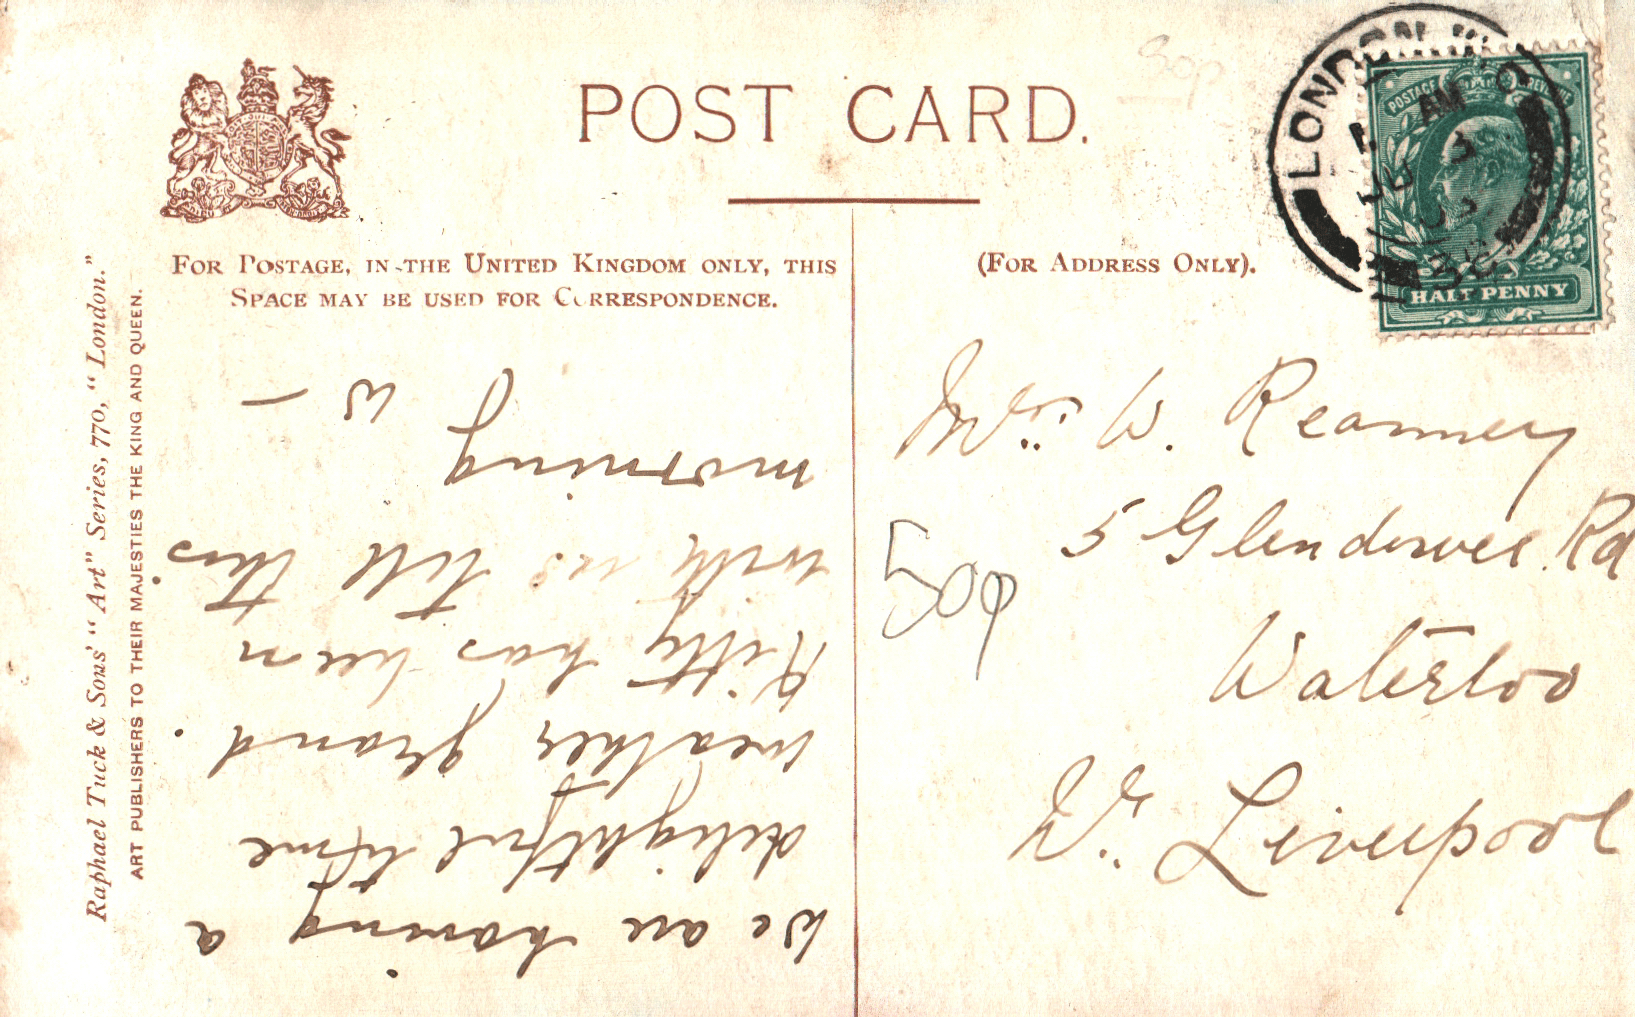 POST CARD.
80p
FOR POSTAGE, IN THE UNITED KINGDOM ONLY, THIS
SPACE MAY BE USED FOR CORRESPONDENCE.
(FOR ADDRESS ONLY).
Raphael Tuck & Sons' "Art" Series, 770, "London."
ART PUBLISHERS TO THEIR MAJESTIES THE KING AND QUEEN.
LONDON W.C
AM
3
POSTAGE REVENUE
HALF PENNY
We are having a
delightful time
weather grand.
Kitty has been
with us till this
morning
W
Mrs. W. Reanney
5 Glendower Rd
Waterloo
Nr. Liverpool
50p